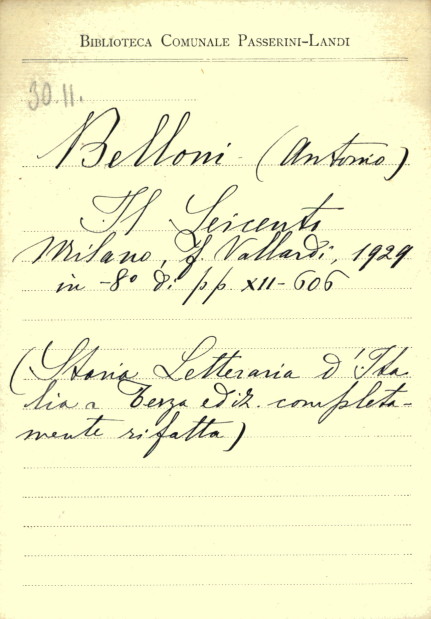 BIBLIOTECA COMUNALE PASSERINI-LANDI
30.11.
Belloni (Antonio)
Il Seicento
Milano, F. Vallardi, 1929
in -8º di pp. XII-606
(Storia Letteraria d'Ita
lia - Terza ediz. completa-
mente rifatta)